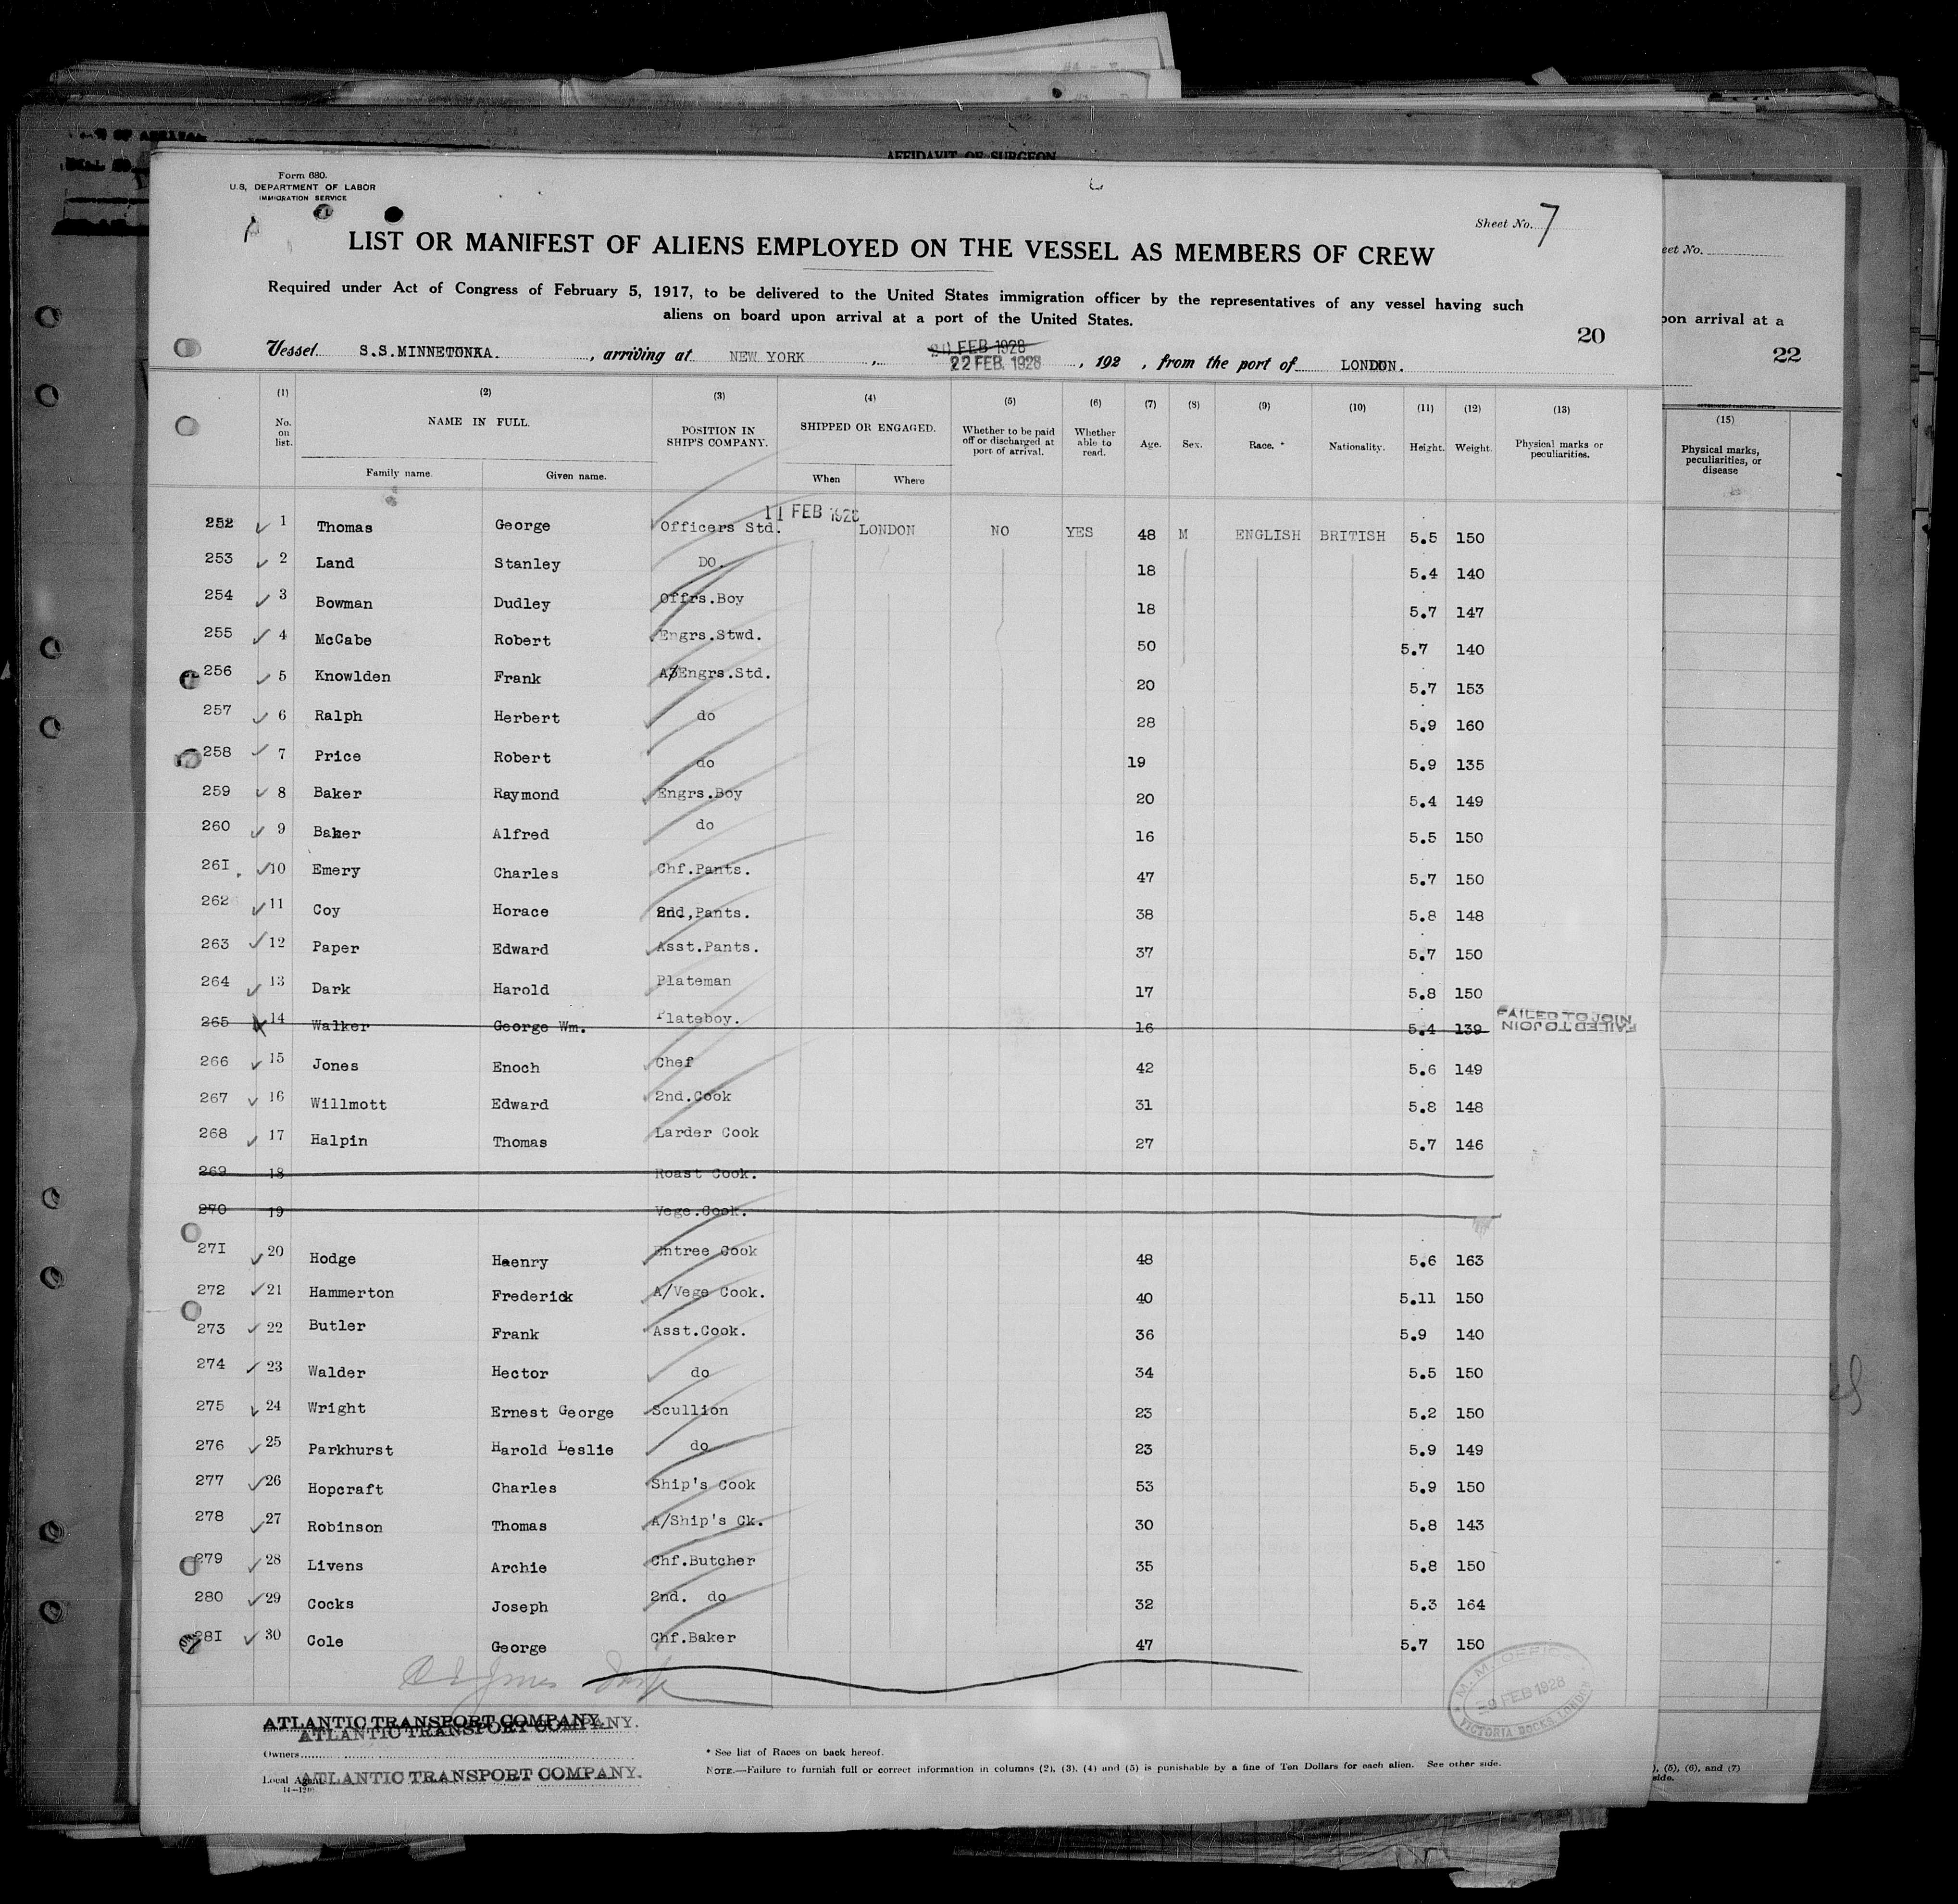 AFFIDAVIT OF SURGEON
Form 680.
U.S. DEPARTMENT OF LABOR
IMMIGRATION SERVICE
Sheet No. 7
LIST OR MANIFEST OF ALIENS EMPLOYED ON THE VESSEL AS MEMBERS OF CREW
Required under Act of Congress of February 5, 1917, to be delivered to the United States immigration officer by the representatives of any vessel having such
aliens on board upon arrival at a port of the United States.
20
20 FEB 1928
Vessel S.S.MINNETONKA., arriving at NEW YORK, 22 FEB. 1928, 192 , from the port of LONDON.
(1) (2) (3) (4) (5) (6) (7) (8) (9) (10) (11) (12) (13)
No. on list. NAME IN FULL. POSITION IN SHIP'S COMPANY. SHIPPED OR ENGAGED. Whether to be paid off or discharged at port of arrival. Whether able to read. Age. Sex. Race.* Nationality. Height. Weight. Physical marks or peculiarities.
Family name. Given name. When Where
252 1 Thomas George Officers Std. 11 FEB 1928 LONDON NO YES 48 M ENGLISH BRITISH 5.5 150
253 2 Land Stanley DO. 18 5.4 140
254 3 Bowman Dudley Offrs.Boy 18 5.7 147
255 4 McCabe Robert Engrs.Stwd. 50 5.7 140
256 5 Knowlden Frank A/Engrs.Std. 20 5.7 153
257 6 Ralph Herbert do 28 5.9 160
258 7 Price Robert do 19 5.9 135
259 8 Baker Raymond Engrs.Boy 20 5.4 149
260 9 Baker Alfred do 16 5.5 150
261 10 Emery Charles Chf.Pants. 47 5.7 150
262 11 Coy Horace 2nd,Pants. 38 5.8 148
263 12 Paper Edward Asst.Pants. 37 5.7 150
264 13 Dark Harold Plateman 17 5.8 150
265 14 Walker George Wm. Plateboy. 16 5.4 139 FAILED TO JOIN
FAILED TO JOIN
266 15 Jones Enoch Chef 42 5.6 149
267 16 Willmott Edward 2nd.Cook 31 5.8 148
268 17 Halpin Thomas Larder Cook 27 5.7 146
269 18 Roast Cook.
270 19 Vege.Cook.
271 20 Hodge Haenry Entree Cook 48 5.6 163
272 21 Hammerton Frederick A/Vege Cook. 40 5.11 150
273 22 Butler Frank Asst.Cook. 36 5.9 140
274 23 Walder Hector do 34 5.5 150
275 24 Wright Ernest George Scullion 23 5.2 150
276 25 Parkhurst Harold Leslie do 23 5.9 149
277 26 Hopcraft Charles Ship's Cook 53 5.9 150
278 27 Robinson Thomas A/Ship's Ck. 30 5.8 143
279 28 Livens Archie Chf.Butcher 35 5.8 150
280 29 Cocks Joseph 2nd. do 32 5.3 164
281 30 Cole George Chf.Baker 47 5.7 150
M. M. OFFICE
9 FEB 1928
VICTORIA DOCKS, LONDON
ATLANTIC TRANSPORT COMPANY.
ATLANTIC TRANSPORT COMPANY.
Owners
Local Agent ATLANTIC TRANSPORT COMPANY.
* See list of Races on back hereof.
NOTE.—Failure to furnish full or correct information in columns (2), (3), (4) and (5) is punishable by a fine of Ten Dollars for each alien. See other side.
eet No.
pon arrival at a
22
(15)
Physical marks,
peculiarities, or
disease
(5), (6), and (7)
side.